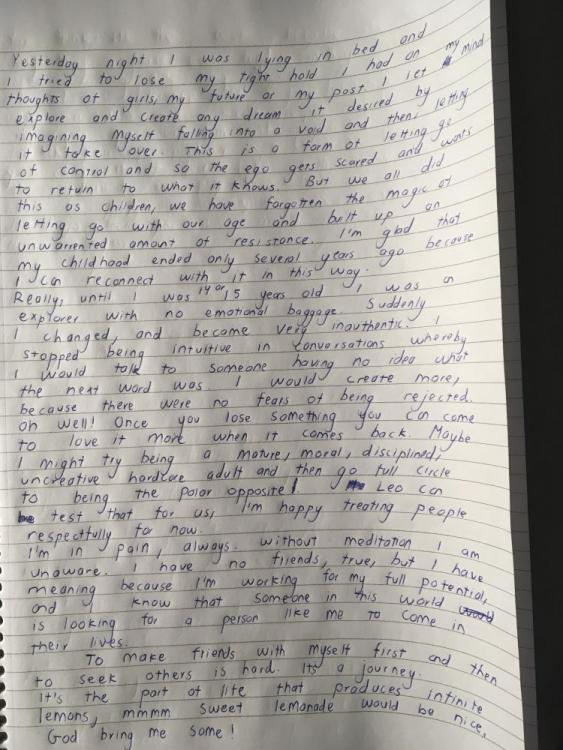 Yesterday night I was lying in bed and
I tried to lose my tight hold I had on my mind
thoughts of girls, my future or my past I let
explore and create any dream it desired by
imagining myself falling into a void and then letting
it take over. This is a form of letting go
of control and so the ego gets scared and wants
to return to what it knows. But we all did
this as children, we have forgotten the magic of
letting go with our age and built up an
unwarrented amount of resistance. I'm glad that
my childhood ended only several years ago because
I can reconnect with it in this way.
Really, until I was 14 or 15 years old I was an
explorer with no emotional baggage. Suddenly
I changed, and became very inauthentic. I
stopped being intuitive in conversations whereby
I would talk to someone having no idea what
the next word was. I would create more,
because there were no fears of being rejected.
oh well! Once you lose something you can come
to love it more when it comes back. Maybe
I might try being a mature, moral, disciplined,
uncreative hardcore adult and then go full circle
to being the polar opposite!. Leo can
test that for us, I'm happy treating people
respectfully for now.
I'm in pain, always. without meditation I am
unaware. I have no friends, true, but I have
meaning because I'm working for my full potential,
and I know that someone in this world
is looking for a person like me to come in
their lives.
To make friends with myself first and then
to seek others is hard. Its a journey.
It's the part of life that produces infinite
lemons, mmmm sweet lemonade would be nice,
God bring me some!